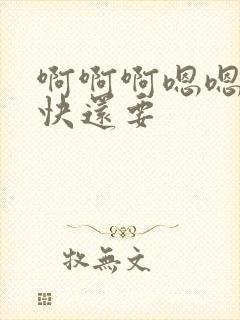 啊啊啊嗯嗯
快还要
牧無文